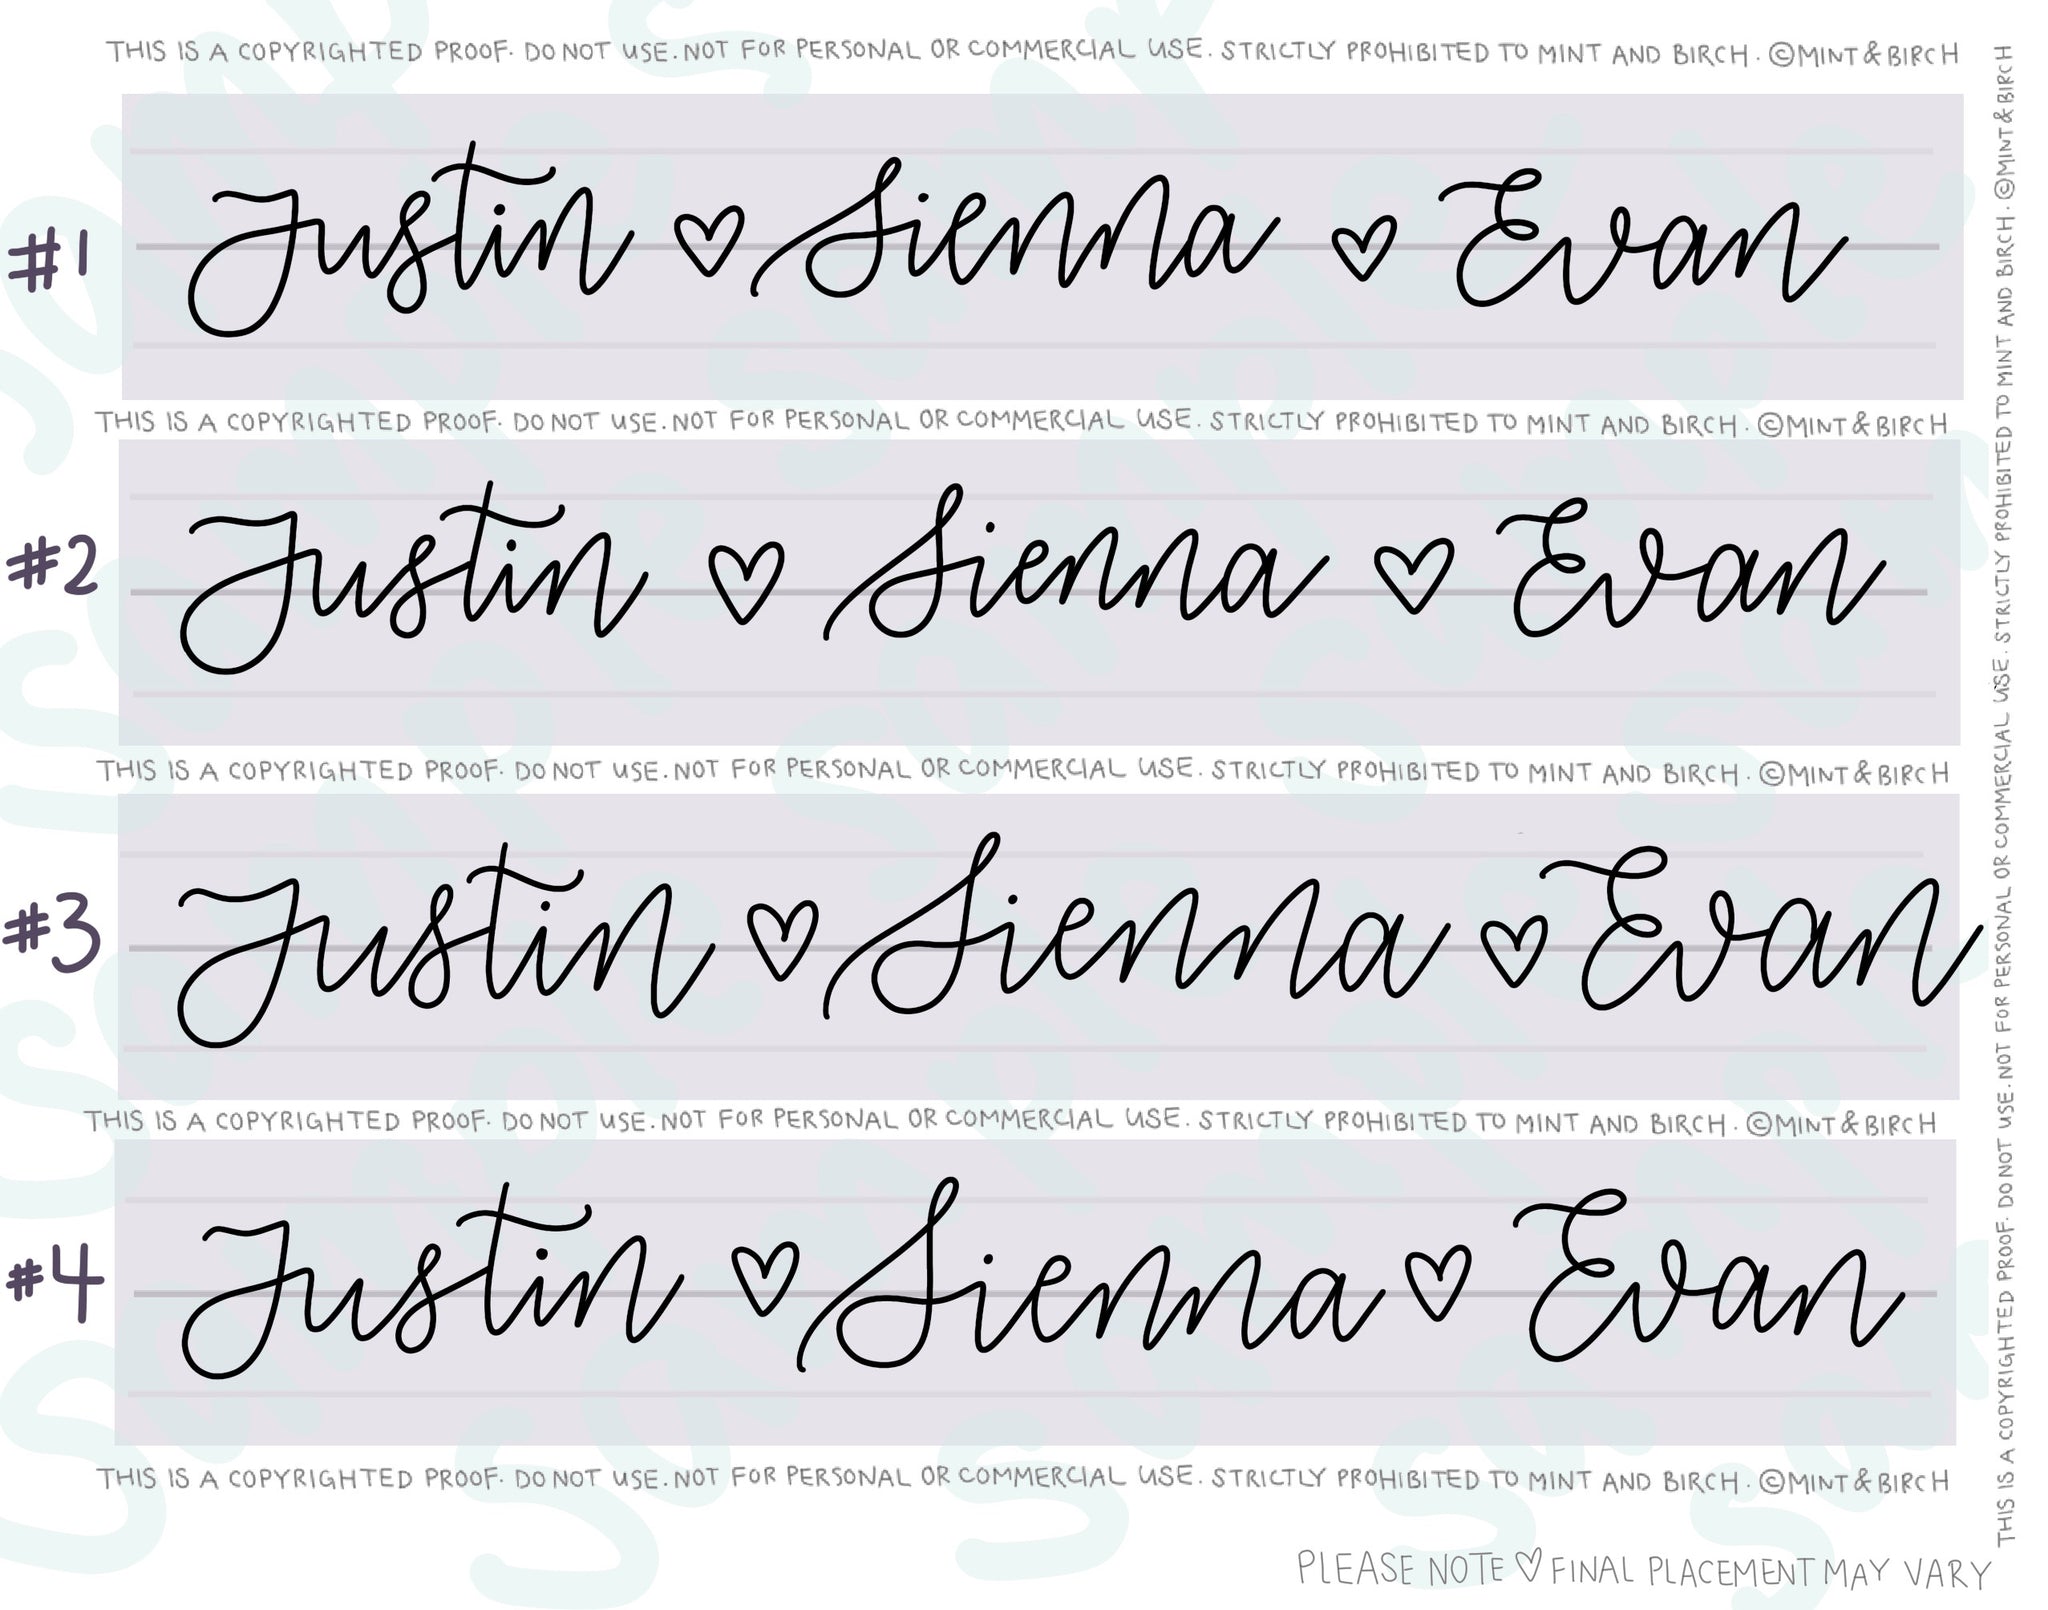 THIS IS A COPYRIGHTED PROOF. DO NOT USE. NOT FOR PERSONAL OR COMMERCIAL USE. STRICTLY PROHIBITED TO MINT AND BIRCH. ©MINT&BIRCH
#1 Justin ♡ Sienna ♡ Evan
THIS IS A COPYRIGHTED PROOF. DO NOT USE. NOT FOR PERSONAL OR COMMERCIAL USE. STRICTLY PROHIBITED TO MINT AND BIRCH. ©MINT&BIRCH
#2 Justin ♡ Sienna ♡ Evan
THIS IS A COPYRIGHTED PROOF. DO NOT USE. NOT FOR PERSONAL OR COMMERCIAL USE. STRICTLY PROHIBITED TO MINT AND BIRCH. ©MINT&BIRCH
#3 Justin ♡ Sienna ♡ Evan
THIS IS A COPYRIGHTED PROOF. DO NOT USE. NOT FOR PERSONAL OR COMMERCIAL USE. STRICTLY PROHIBITED TO MINT AND BIRCH. ©MINT&BIRCH
#4 Justin ♡ Sienna ♡ Evan
THIS IS A COPYRIGHTED PROOF. DO NOT USE. NOT FOR PERSONAL OR COMMERCIAL USE. STRICTLY PROHIBITED TO MINT AND BIRCH. ©MINT&BIRCH
PLEASE NOTE ♡ FINAL PLACEMENT MAY VARY
THIS IS A COPYRIGHTED PROOF. DO NOT USE. NOT FOR PERSONAL OR COMMERCIAL USE. STRICTLY PROHIBITED TO MINT AND BIRCH. ©MINT&BIRCH